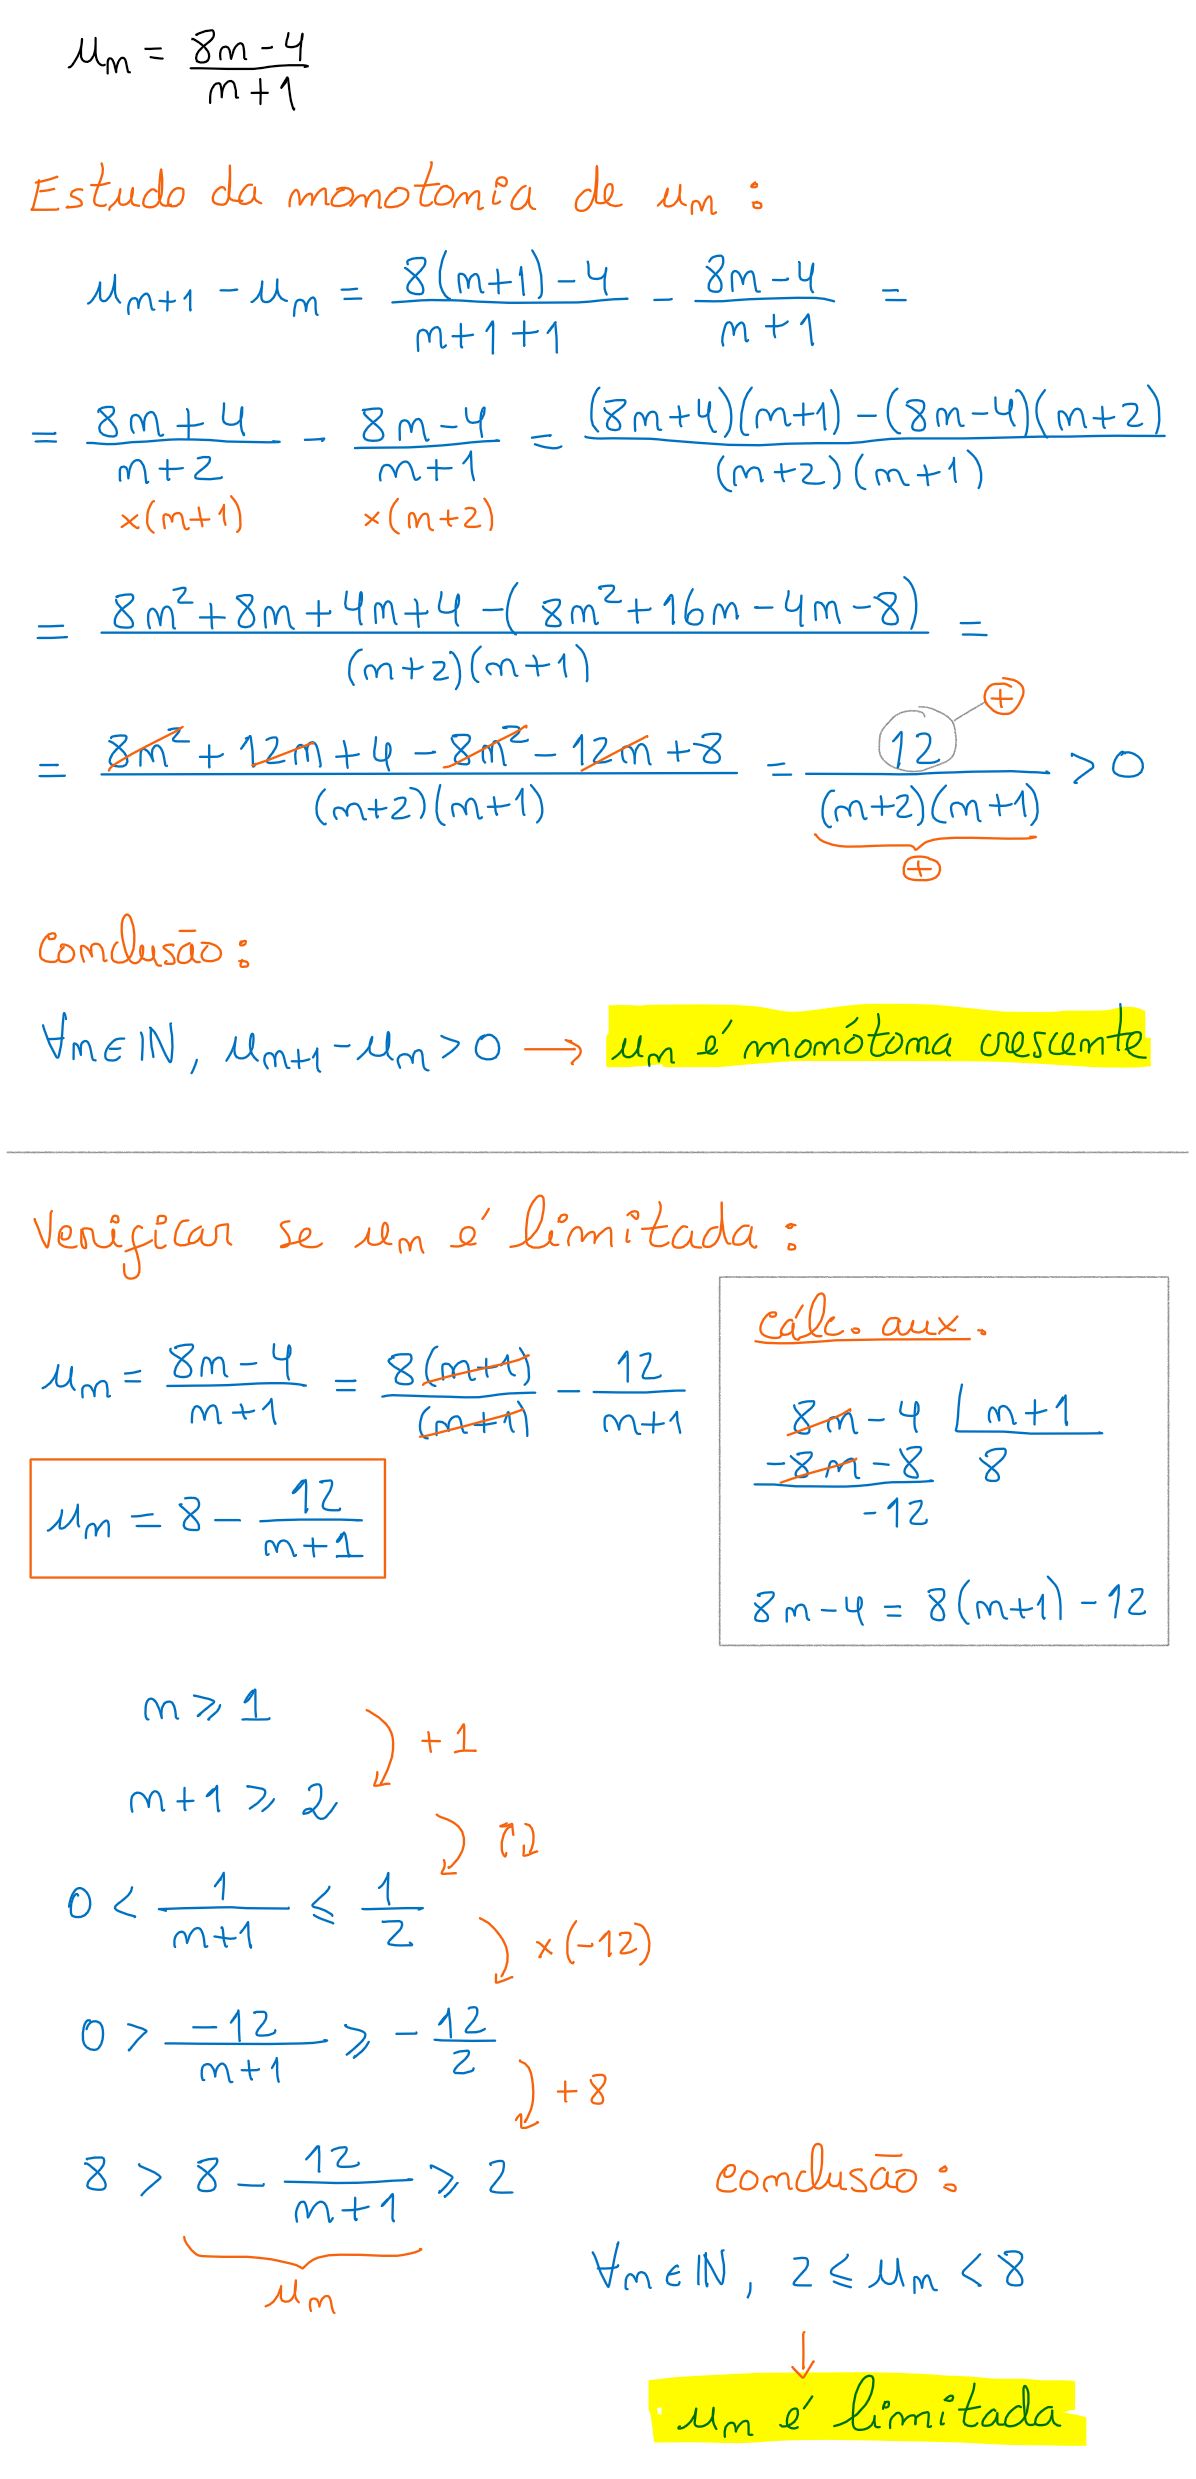 uₙ = (8n - 4)/(n + 1)
Estudo da monotonia de uₙ :
uₙ₊₁ - uₙ = (8(n+1) - 4)/(n+1+1) - (8n - 4)/(n+1) =
= (8n + 4)/(n+2) - (8n - 4)/(n+1) = ((8n+4)(n+1) - (8n-4)(n+2))/((n+2)(n+1))
×(n+1) ×(n+2)
= (8n² + 8n + 4n + 4 - (8n² + 16n - 4n - 8))/((n+2)(n+1)) =
= (8n² + 12n + 4 - 8n² - 12n + 8)/((n+2)(n+1)) = 12/((n+2)(n+1)) > 0
+
+
Conclusão :
∀n∈ℕ, uₙ₊₁ - uₙ > 0 → uₙ é monótona crescente
Verificar se uₙ é limitada :
uₙ = (8n - 4)/(n+1) = 8(n+1)/(n+1) - 12/(n+1)
uₙ = 8 - 12/(n+1)
Cálc. aux.
8n - 4 | n+1
-8n - 8 8
-12
8n - 4 = 8(n+1) - 12
n ⩾ 1
+1
n+1 ⩾ 2
0 < 1/(n+1) ⩽ 1/2
×(-12)
0 > -12/(n+1) ⩾ -12/2
+8
8 > 8 - 12/(n+1) ⩾ 2
uₙ
Conclusão :
∀n∈ℕ, 2 ⩽ uₙ < 8
↓
uₙ é limitada